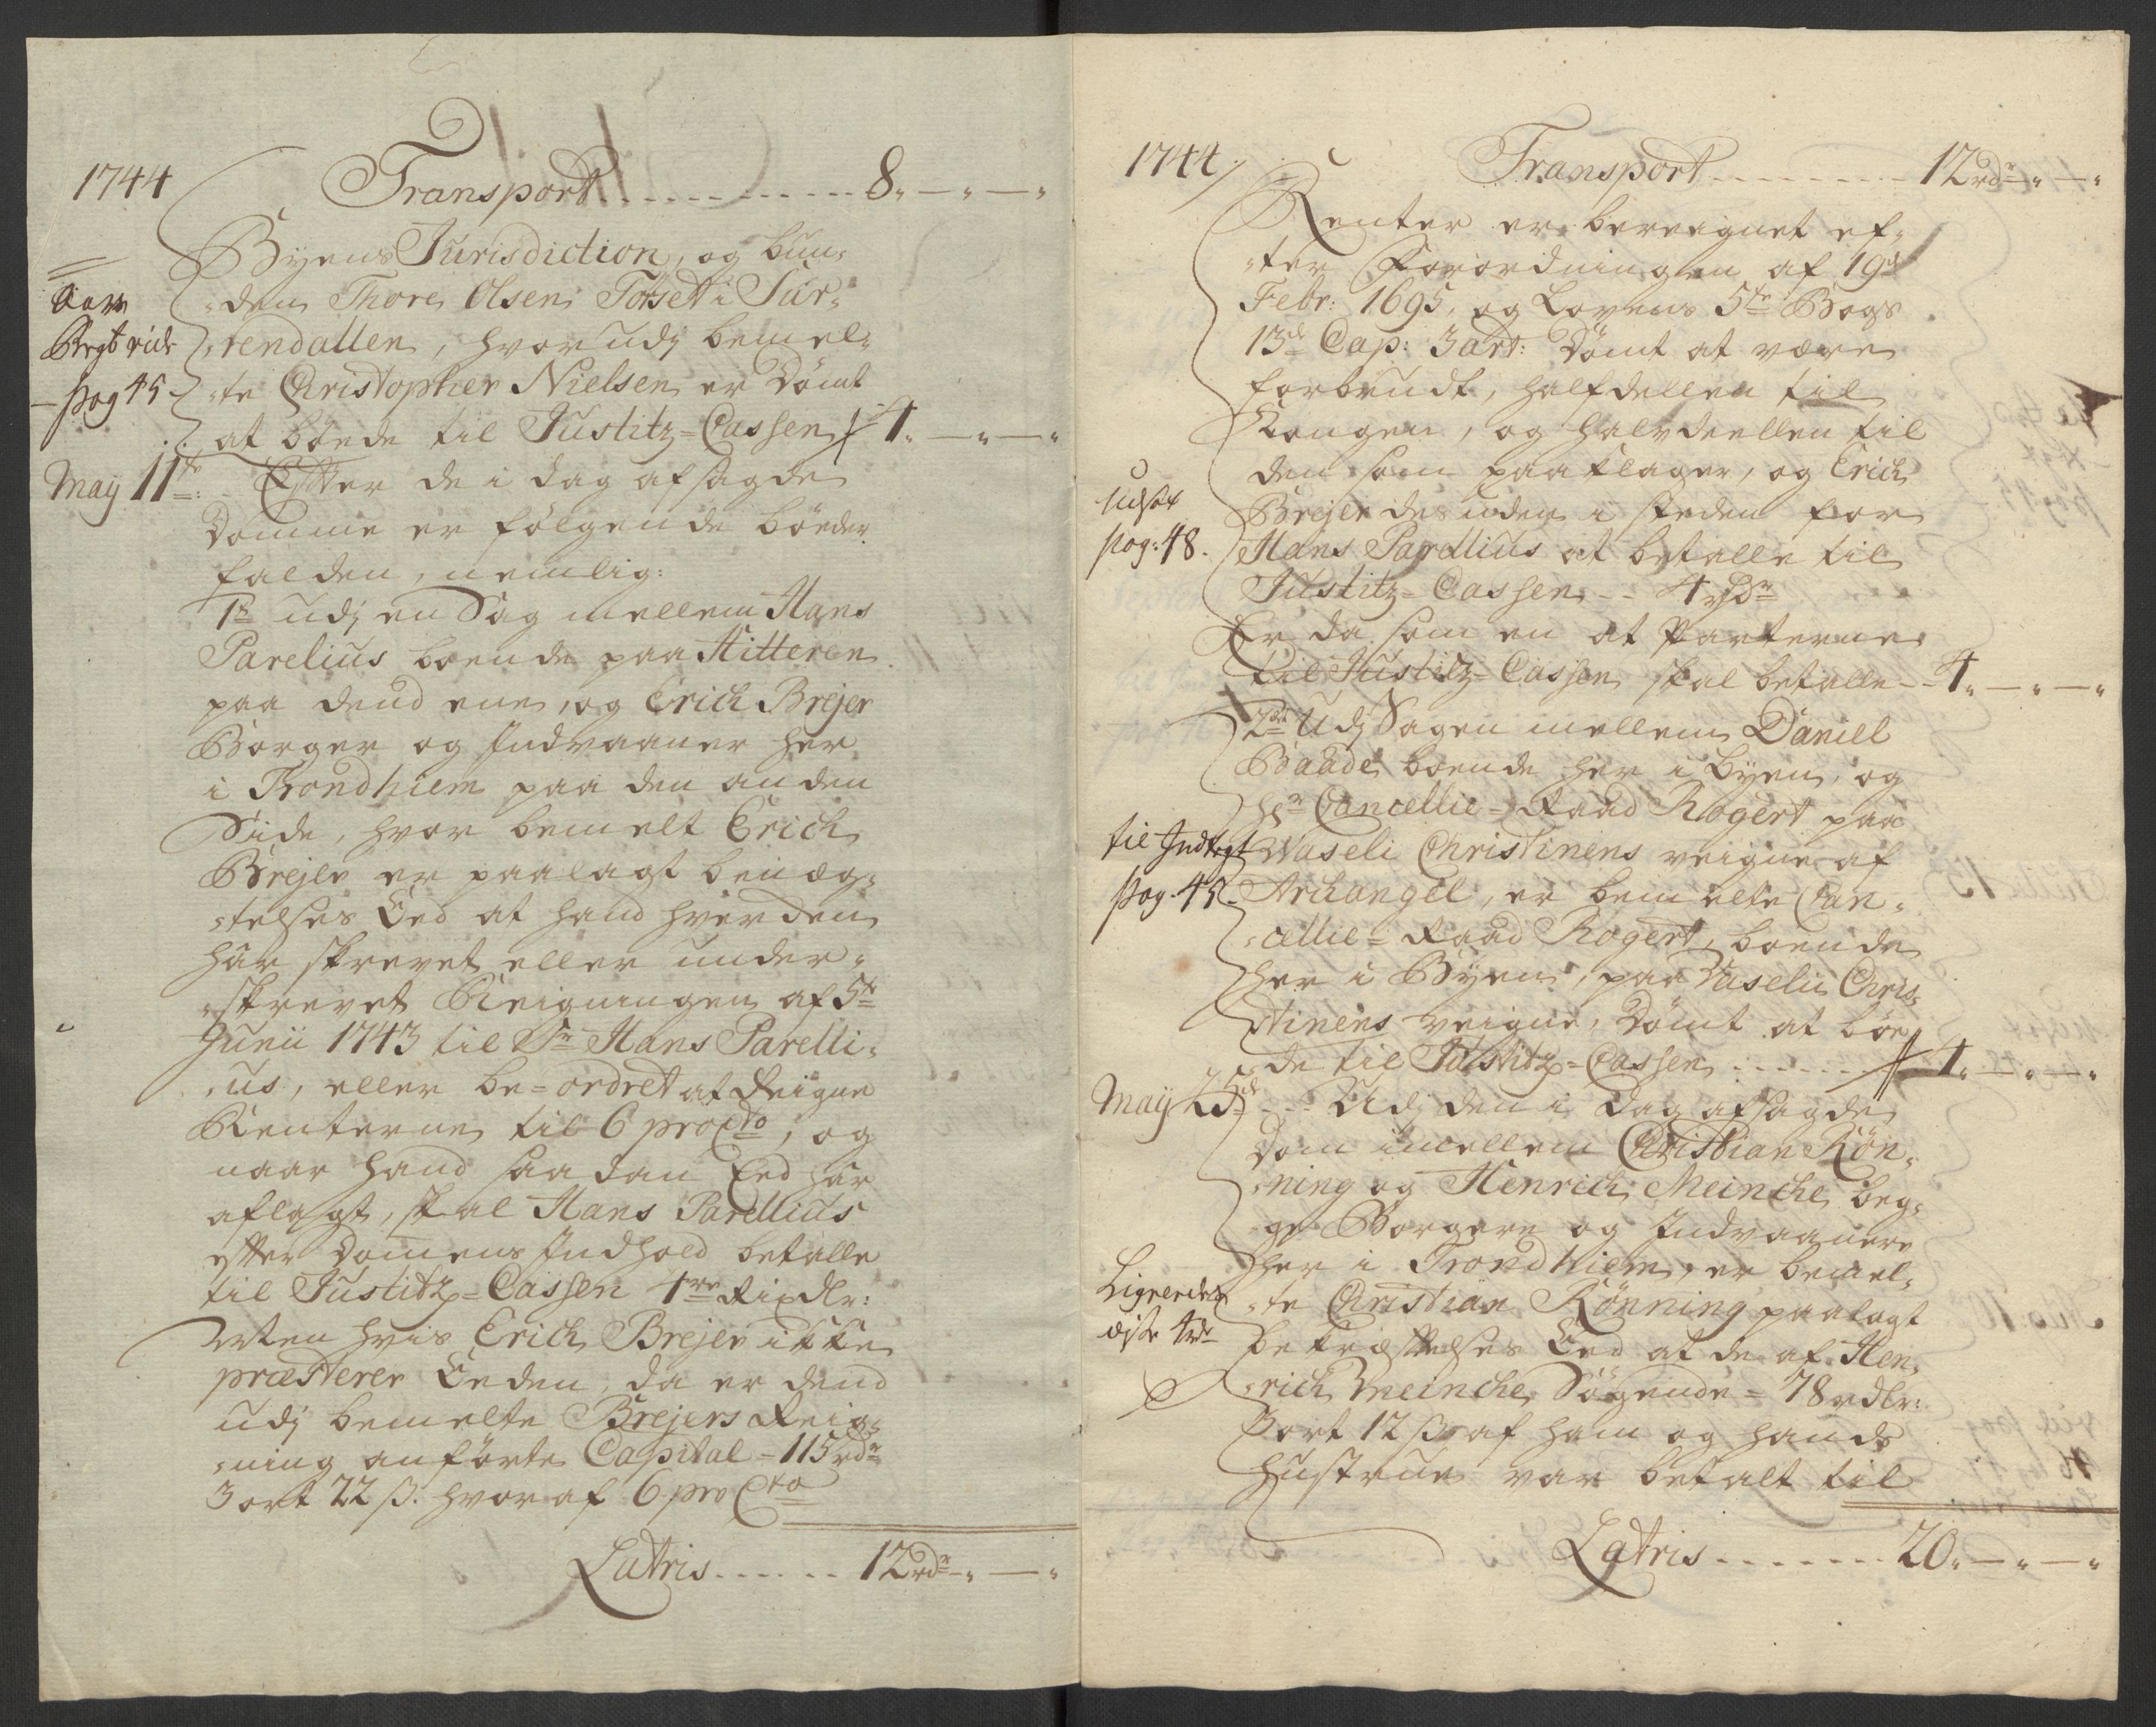 1744
Transport . . . . . . . . . . . 8. — " — "
Byens Jurisdiction, og bun-
den Thore Olsen Tøset i Sur-
rendallen, hvorudj bemel-
te Christopher Nielsen er Dømt
at bøede til Justitz-Cassen 4. — " — "
vide
pag 45
Maÿ 11te: Efter de i dag afsagde
Domme er følgende bøeder
falden, nemlig:
1te udj en Sag mellem Hans
Parelius boende paa Hitteren
paa dend ene, og Erich Brejer
Borger og Indvaaner her
i Trondhiem paa den anden
Side, hvor bemelt Erich
Brejer er paalagt benæg-
telses Eed at hand hverden
har skrevet eller under-
skrevet Reigningen af 5te
Junii 1743 til Sr Hans Parelli-
us, eller be-ordret at Reigne
Renterne til 6 pro Cto, og
naar hand saadan Eed har
aflagt, skal Hans Parellius
efter Domens Indhold betalle
til Justitz-Cassen 4re Rixdlr:
Men hvis Erich Brejer ikke
præsterer Eeden, da er dend
udj bemelte Brejers Reig-
ning anførte Capital = 115 rdr
3 ort 22 ß. hvoraf 6 pro Cto
Latris . . . . . . 12 rdr — " — "
1744
Transport . . . . . . . . . 12 rdr — " — "
Renter er bereignet ef-
ter Forordningen af 19de
Febr: 1695, og Lovens 5te Bogs
13de Cap: 3 art: Dømt at være
forbrudt, halfdellen til
Kongen, og halvdeellen til
den som paaklager, og Erich
Brejer desuden i steden for
pag: 48.
Hans Parellius at betalle til
Justitz-Cassen -- 4 rdr
Er da som en at Parterne
til Justitz-Cassen skal betalle -- 4. — " — "
2det Udj Sagen mellem Daniel
Baade boende her i Byen, og
Hr Cancellie-Raad Rogert paa
til Indtegt
Waseli Christinens veigne af
pag. 45
Archangel, er bemelte Can-
cellie-Raad Rogert, boende
her i Byen, paa Vaselii Chris-
tinens veigne, Dømt at bøe-
de til Justitz-Cassen . . . . . . . 4. — " — "
Maÿ 25de - - - Udj den i Dag afsagde
Dom imellem Christian Røn-
ning og Henrich Meincke beg-
ge Borgere og Indvaanere
her i Trondhiem, er bemel-
Ligeledes
te Christian Rønning paalagt
disse 4rdr
bekræftelses Eed at de af Hen-
rich Meincke Søgende = 78 rdlr:
3 ort 12 ß af ham og hands
Hustrue var betalt til
Latris . . . . . . . . 20. — " — "